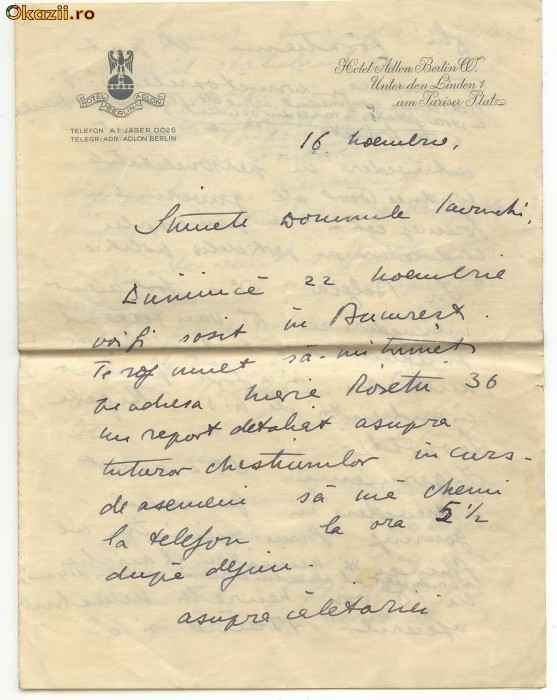 Okazii.ro
HOTEL ADLON
BERLIN
TELEFON: A1. JÄGER 0026
TELEGR.-ADR.: ADLON BERLIN
Hotel Adlon Berlin W.
Unter den Linden 1
am Pariser Platz
16 Noembrie,
Stimate Domnule
Duminică 22 Noembrie
voi fi sosit în București.
Te rog mult să-mi trimeți
pe adresa Rosetti 36
un report detaliat asupra
tuturor chestiunilor în curs -
de asemeni să mă chemi
la telefon la ora 5 1/2
după dejun.
asupra călătoriei